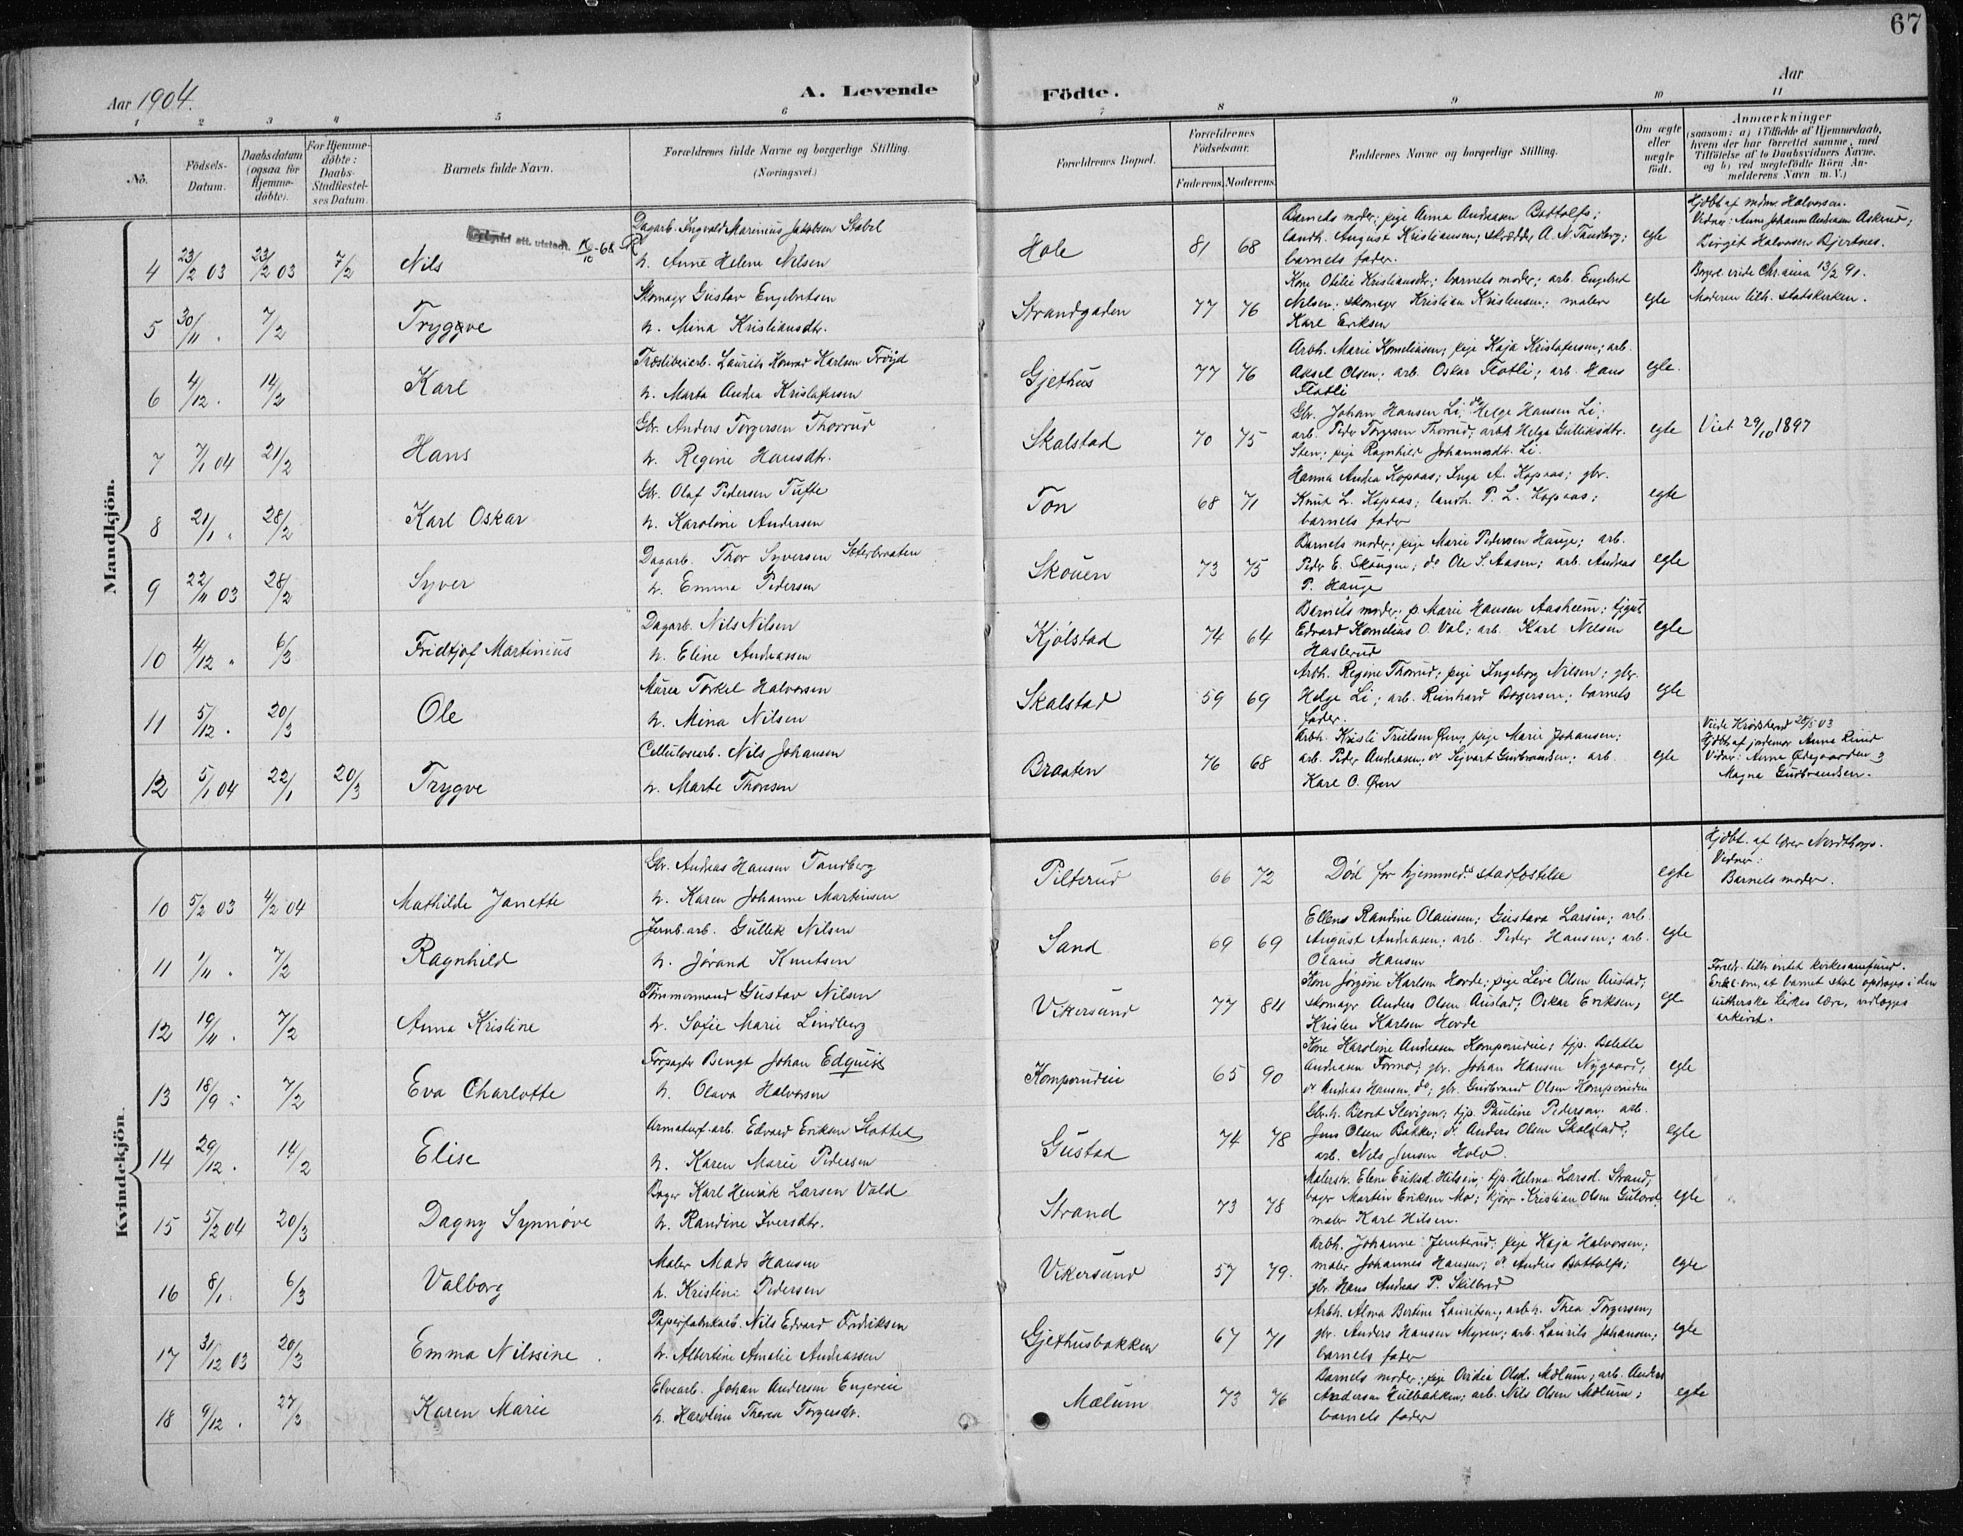 67
Aar 1904.
A. Levende Födte.
Aar
1 2 3 4 5 6 7 8 9 10 11
No.
Födsels-Datum.
Daabsdatum (ogsaa for Hjemmedöbte).
For Hjemmedöbte: Daabs-Stadfæstelses Datum.
Barnets fulde Navn.
Forældrenes fulde Navne og borgerlige Stilling. (Næringsvei.)
Forældrenes Bopæl.
Forældrenes Födselsaar.
Faderens. Moderens.
Faddernes Navne og borgerlige Stilling.
Om ægte eller uægte födt.
Anmærkninger (saasom: a) i Tilfælde af Hjemmedaab, hvem der har forrettet samme, med Tilföielse af to Daabsvidners Navne, og b) ved uægtefödte Börn Anmelderens Navn m. V.)
Mandkjön.
4 23/2 03 23/2 03 7/2 Nils
att. utstedt 16/10-68
Dagarb. Ingvald Marinius Jakobsen Stabel
h. Anne Helene Nilsen
Hole 81 68
Barnets moder; pige Anna Andreasen Bottolfs;
landh. August Kristiansen; skrædder A. N. Tandberg;
barnets fader.
egte
Hjdbt af mdm Halvorsen.
Vidner: Anne Johanne Andreasen Askerud;
Birgit Halvorsen Bjertnes.
5 30/11 " 7/2 Tryggve
Skomager Gustav Engebritsen
h. Mina Kristiansdtr.
Strandgaden 77 76
Kone Otilie Kristiansdtr; barnets moder; arb. Engebret
Nilsen; skomager Kristian Kristensen; maler
Karl Eriksen
egte
Borgerl. viede Chr.ania 13/2 91.
Moderen tilh. statskirken.
6 4/12 . 14/2 Karl
Træsliberiarb. Laurits Konrad Karlsen Fröyd
h. Marta Andrea Kristofersen
Gjethus 77 76
Arbh. Marie Korneliusen; pige Kaja Kristofersen; arb.
Aksel Olsen; arb. Oskar Flotli; arb. Hans
Flotli
egte.
7 7/1 04 21/2 Hans
Gbr. Anders Torgersen Thorrud
h. Regine Hansdtr.
Skalstad 70 75
Gbr. Johan Hansen Li; do Helge Hansen Li;
arb. Peder Torgersen Thorrud; arbh Helga Gulliksdtr.
Sten; pige Ragnhild Johannesdtr. Li.
egte
Viet 29/10 1897
8 21/1 " 28/2 Karl Oskar
Gbr. Olaf Pedersen Tufte
h. Karoline Andersen
Ton 68 71
Hanna Andrea Kopaas; Inga A. Kopaas; gbr.
Knut L. Kopaas; landh. P. L. Kopaas;
barnets fader
egte
9 22/11 03 28/2 Syver
Dagarb. Thor Syversen Seterbraaten
h. Emma Pedersen
Skouen 73 75
Barnets moder; pige Marie Pedersen Hauge; arb.
Peder E. Skaugen; do Ole S. Aasen; arb. Andreas
P. Hauge
egte
10 4/12 " 6/3 Fridtjof Martinius
Dagarb. Nils Nilsen
h. Eline Andreassen
Kjölstad 74 64
Barnets moder; p. Marie Hansen Aasheim; tjgut
Edvard Kornelius O. Val; arb. Karl Nilsen
Haslerud
egte
11 5/12 . 20/3 Ole
Murer Torkel Halvorsen
h. Mina Nilsen
Skalstad 59 69
Arbh. Regine Thorrud; pige Ingeborg Nilsen; gbr.
Helge Li; arb. Reinhard Borgersen; barnets
fader.
egte
12 5/1 04 22/1 20/3 Trygve
Cellulosearb. Nils Johansen
h. Marte Thoresen
Braaten 76 68
Arbh. Kristi Truelsen Øren; pige Marie Johansen;
arb. Peder Andreasen; do Sigvart Gudbrandsen; arb.
Karl O. Øren
egte
Viede Krödsherad 28/5 03
Hjdbt. af jordemor Anna Ruud
Vidner: Anne Ødegaarden &
Magna Gudbrandsen.
Kvindekjön.
10 5/2 03 4/2 04 Mathilde Janette
Gbr. Andreas Hansen Tandberg
h. Karen Johanne Martinsen
Pilterud 66 72
Död för hjemmed. stadfæstelse
egte
Hjdbt. af lærer Nordthorp.
Vidner:
Barnets moder.
11 1/11 . 7/2 Ragnhild
Jernb.arb. Gullek Nilsen
h. Jörand Knutsen
Sand 69 69
Ellens Randine Olausen; Gustava Larsen; arb.
August Andreasen; arb. Peder Hansen; arb.
Olaus Hansen
egte
12 19/11 . 7/2 Anna Kristine
Tömmermand Gustav Nilsen
h. Sofie Marie Lindberg
Vikersund 77 84
Kone Jörgine Karlsen Horde; pige Live Olsen Austad;
skomagr Anders Olsen Austad; Oskar Eriksen;
Kristen Karlsen Horde
egte
Foreldr. tilh. intet kirkesamfund.
Erkl. om, at barnet skal opdrages i den
lutherske kirkes lære, vedlægges
arkivet.
13 18/9 . 7/2 Eva Charlotte
Forpagter Bengt Johan Edquist
h. Olava Halvorsen
Komperudeie 65 90
Kone Karoline Andreasen Komperudeie; tjp. Bolette
Andreasen Formo; gbr. Johan Hansen Nygaard;
do Andreas Hansen do; gbr. Gudbrand Olsen Komperudeie
egte
14 29/12 . 14/2 Elise
Armaturf.arb. Edvard Eriksen Slottet
h. Karen Marie Pedersen
Gustad 74 78
Gbrh. Berit Slevigen; tjp. Pauline Pedersen; arb.
Jens Olsen Bakke; do Anders Olsen Skalstad;
arb. Nils Jensen Holv.
egte
15 5/2 04 20/3 Dagny Synnöve
Bager Karl Henrik Larsen Vold
h. Randine Iversdtr.
Strand 73 78
Malerh. Elene Eriksd. Hilsen; tjp. Helma Larsd. Strand;
bager Martin Eriksen Mo; kjörer Kristian Olsen Gulord;
maler Karl Hilsen.
egte
16 8/1 . 6/3 Valborg
Maler Mads Hansen
h. Kristine Pedersen
Vikersund 57 79.
Arbh. Johanne Jernterud; pige Kaja Halvorsen;
maler Johannes Hansen; do Anders Bottolfs;
gbr. Hans Andreas P. Skilbred
egte
17 31/12 03 20/3 Emma Nilssine
Papirfabrikarb. Nils Edvard Fredriksen
h. Albertine Amalie Andreassen
Gjethusbakken 67 71
Arbh. Alvva Bertine Lauritsen; arbh. Thea Torgersen;
gbr. Anders Hansen Myren; arb. Laurits Johansen;
barnets fader
egte
18 9/12 . 27/3 Karen Marie
Elvearb. Johan Andersen Engereie
h. Karoline Theresa Torgersdtr.
Mælum 73 76
Barnets moder; pige Ovidia Olsd. Mælum; arb. Anders
Andersen Hulbakken; arb. Nils Olsen Mælum;
barnets fader
egte